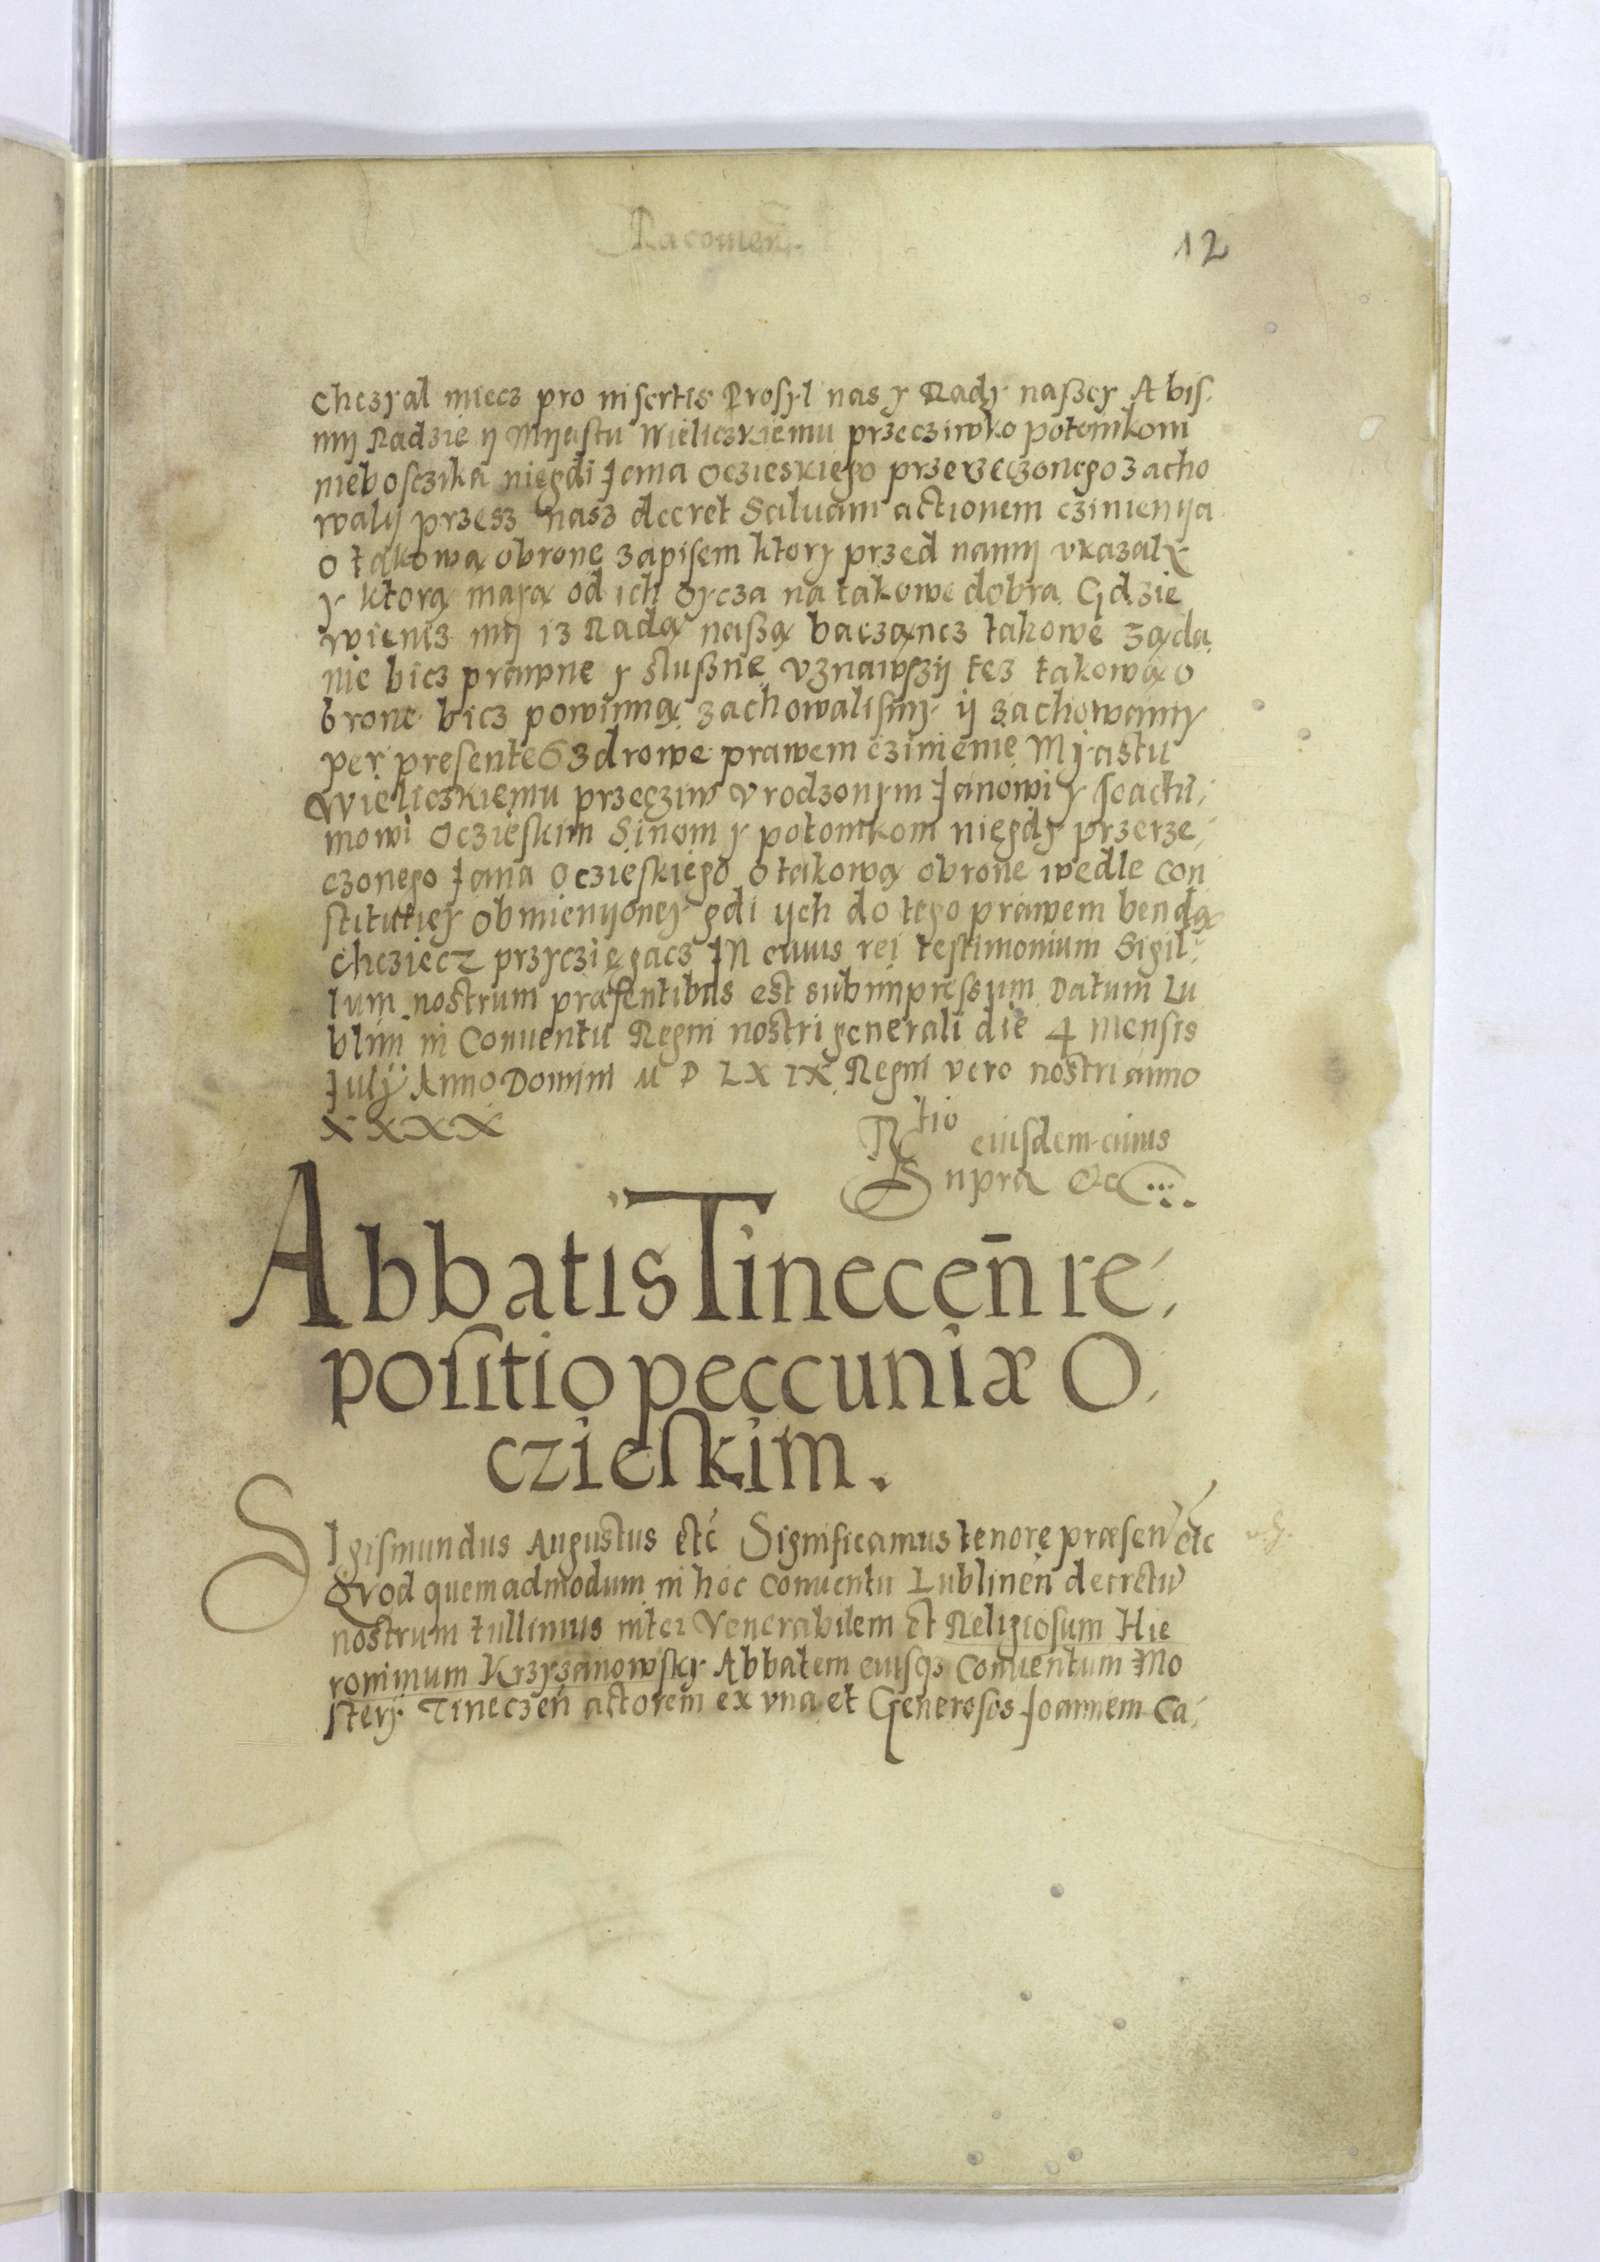 Racouien̄.
12
chczyal miecz pro insertis Prosyl nas y Rady naszey Abis-
my Radzie y Myastu Wieliczkiemu przecziwko potomkom
nieboszika niegdi Jana Oczieskiego przerzeczonego zacho
waly przesz nasz decret Saluam actionem czinienya
o takową obronę zapisem ktory przed namy vkazaly
y ktorą mayą od ich oycza na takowe dobra Gdzie
wiencz my iz Radą naszą bacząncz takowe ząda
nie bicz prawne y sluszne vznawszy tez takową o
bronę bicz powinną zachowalismy y zachowamy
per presentes zdrowe prawem czinienie Myastu
Wieliczkiemu przecziw vrodzonym Janowi y Joachi,
mowi Oczieskim Sinom y potomkom niegdy przerze,
czonego Jana Oczieskiego o takową obronę wedle con
stitutiey obmienyoney gdi ych do tego prawem bendą
chcziecz przyczięgacz In cuius rei testimonium Sigil,
lum nostrum præsentibus est subimpressum Datum Lu
blini in Conuentu Regni nostri generali die 4 mensis
July Anno Domini M D LXIX Regni vero nostri anno
XXXX
Rtio eiusdem cuius
Supra &c
Abbatis Tinecen̄ re,
positio peccuniæ O,
czieskim.
Sigismundus Augustus etc̄ Significamus tenore præsen̄ etc
Qvod quemadmodum in hoc Conuentu Lublinen̄ decretū
nostrum tullimus inter Venerabilem et Religiosum Hie
ronimum Krzyzanowsky Abbatem euisq3 Conuentum Mo
stery Tineczen̄ actorem ex vna et Generosos Joannem Ca,